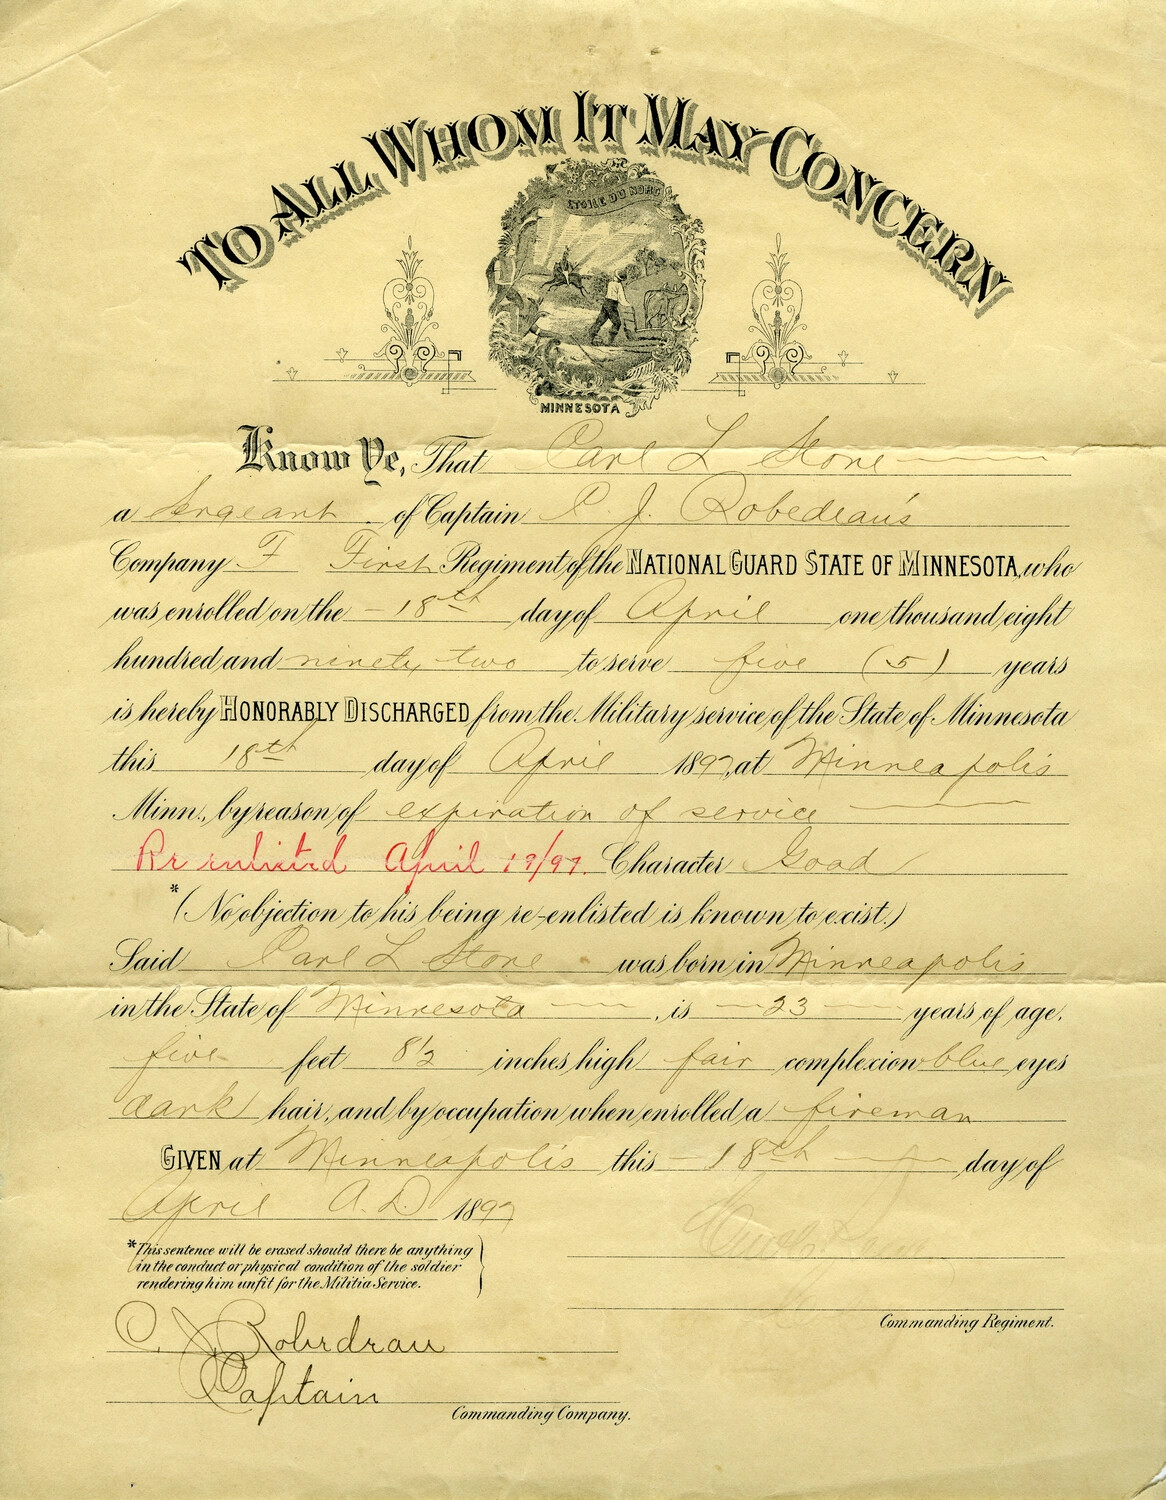 TO ALL WHOM IT MAY CONCERN
ETOILE DU NORD
MINNESOTA
Know Ye, That Carl L Stone
a Sergeant of Captain C. J. Robedeau's
Company F First Regiment of the NATIONAL GUARD STATE OF MINNESOTA, who
was enrolled on the - 18th day of April one thousand eight
hundred and ninety two to serve five (5) years
is hereby HONORABLY DISCHARGED from the Military service of the State of Minnesota
this 18th day of April 1897, at Minneapolis
Minn., by reason of expiration of service
Re enlisted April 19/97. Character Good
*(No objection to his being re-enlisted is known to exist.)
Said Carl L Stone was born in Minneapolis
in the State of Minnesota, is 23 years of age,
five feet 8 1/2 inches high fair complexion blue eyes
dark hair, and by occupation when enrolled a fireman
GIVEN at Minneapolis this 18th day of
April A.D. 1897
*This sentence will be erased should there be anything
in the conduct or physical condition of the soldier
rendering him unfit for the Militia Service.
Commanding Regiment.
C. J. Robedeau
Captain
Commanding Company.